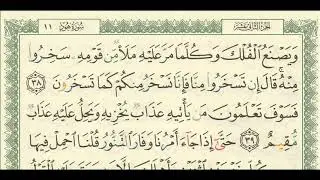 سورة هود ١١ الجزء الثاني عشر
وَيَصْنَعُ ٱلْفُلْكَ وَكُلَّمَا مَرَّ عَلَيْهِ مَلَأٌ مِّن قَوْمِهِۦ سَخِرُوا۟
مِنْهُ ۚ قَالَ إِن تَسْخَرُوا۟ مِنَّا فَإِنَّا نَسْخَرُ مِنكُمْ كَمَا تَسْخَرُونَ ٣٨
فَسَوْفَ تَعْلَمُونَ مَن يَأْتِيهِ عَذَابٌ يُخْزِيهِ وَيَحِلُّ عَلَيْهِ عَذَابٌ
مُّقِيمٌ ٣٩ حَتَّىٰٓ إِذَا جَآءَ أَمْرُنَا وَفَارَ ٱلتَّنُّورُ قُلْنَا ٱحْمِلْ فِيهَا